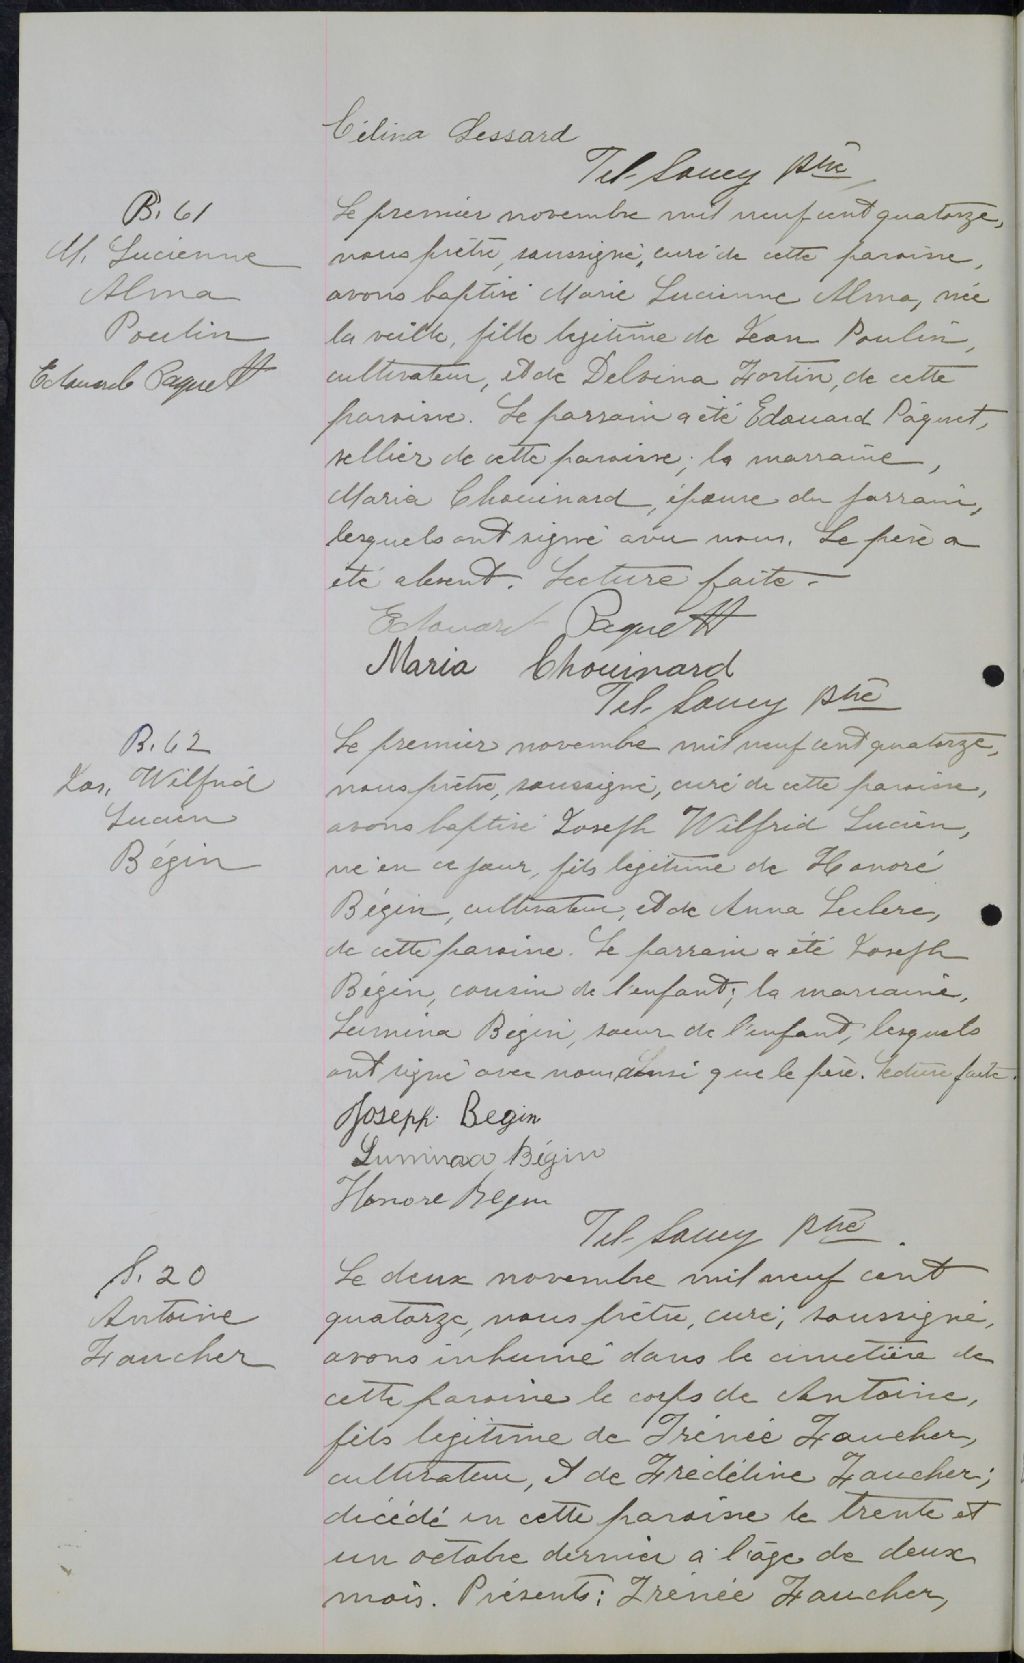 Célina Lessard
Tél. Soucy ptre
B. 61
M. Lucienne
Alma
Poulin
Edouard Paquett
Le premier novembre mil neuf cent quatorze,
nous prêtre, soussigné, curé de cette paroisse,
avons baptisé Marie Lucienne Alma, née
la veille, fille légitime de Jean Poulin,
cultivateur, et de Delvina Fortin, de cette
paroisse. Le parrain a été Edouard Pâquet,
sellier de cette paroisse; la marraine,
Maria Chouinard, épouse du parrain,
lesquels ont signé avec nous. Le père a
été absent. Lecture faite.
Edouard Paquett
Maria Chouinard
Tél. Soucy ptre
B. 62
Jos. Wilfrid
Lucien
Bégin
Le premier novembre mil neuf cent quatorze,
nous prêtre, soussigné, curé de cette paroisse,
avons baptisé Joseph Wilfrid Lucien,
né en ce jour, fils légitime de Honoré
Bégin, cultivateur, et de Anna Leclerc,
de cette paroisse. Le parrain a été Joseph
Bégin, cousin de l'enfant; la marraine,
Lumina Bégin, soeur de l'enfant, lesquels
ont signé avec nous ainsi que le père. Lecture faite.
Joseph Begin
Luminaa Bégin
Honore Begin
Tél. Soucy ptre
S. 20
Antoine
Faucher
Le deux novembre mil neuf cent
quatorze, nous prêtre, curé, soussigné,
avons inhumé dans le cimetière de
cette paroisse le corps de Antoine,
fils légitime de Irénée Faucher,
cultivateur, et de Frédéline Faucher;
décédé en cette paroisse le trente et
un octobre dernier a l'âge de deux
mois. Présents: Irénée Faucher,